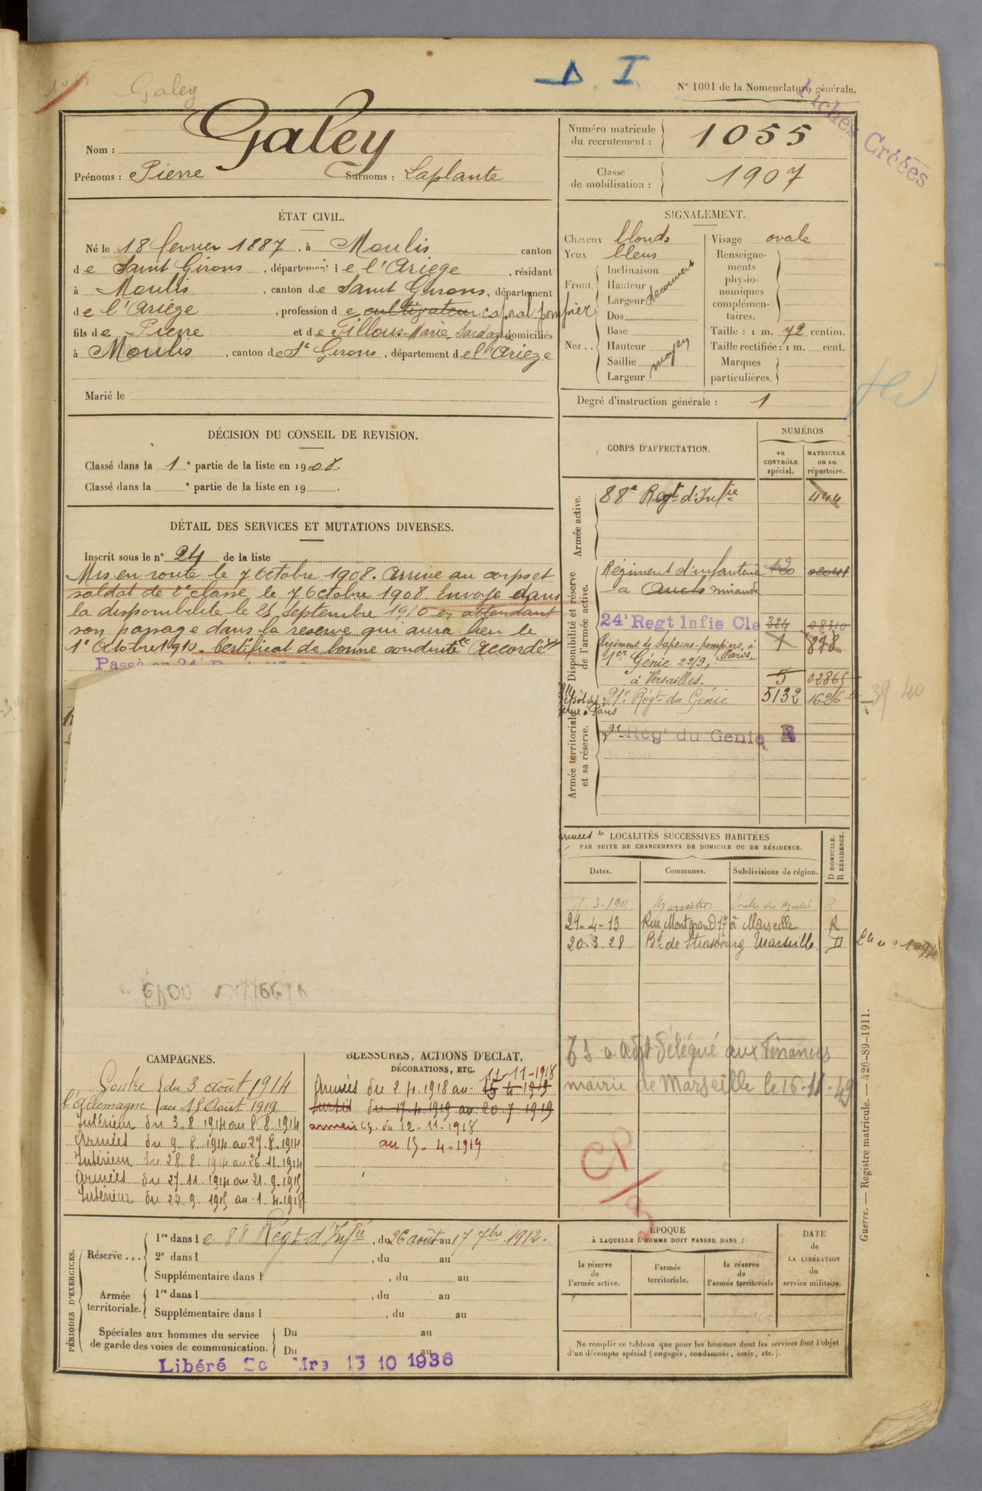 Galey
D. I.
N° 1001 de la Nomenclature générale.
Fiches Créées
Nom : Galey
Prénoms : Pierre Surnoms : Laplante
Numéro matricule du recrutement : 1055
Classe de mobilisation : 1907
ÉTAT CIVIL.
Né le 18 février 1887, à Moulis canton
de Saint Girons, département de l'Ariège, résidant
à Moulis, canton de Saint Girons, département
de l'Ariège, profession de cultivateur caporal pompier
fils de Pierre et de domiciliés
à Moulis, canton de St Girons, département de l'Ariège
Marié le
SIGNALEMENT.
Cheveux blonds
Yeux bleus
Front. Inclinaison
Hauteur
Largeur découvert
Nez.. Dos
Base
Hauteur
Saillie moyen
Largeur
Visage ovale
Renseignements physionomiques complémentaires.
Taille : 1 m. 72 centim.
Taille rectifiée : 1 m. cent.
Marques particulières.
Degré d'instruction générale : 1
DÉCISION DU CONSEIL DE REVISION.
Classé dans la 1e partie de la liste en 1908.
Classé dans la e partie de la liste en 19 .
DÉTAIL DES SERVICES ET MUTATIONS DIVERSES.
Inscrit sous le n° 24 de la liste
Mis en route le 7 Octobre 1908. Arrivé au corps et
soldat de 2e classe le 7 Octobre 1908. Envoyé dans
la disponibilité le 25 septembre 1910 en attendant
son passage dans la réserve qui aura lieu le
1er Octobre 1910. Certificat de bonne conduite Accordé
CORPS D'AFFECTATION.
NUMÉROS
au CONTRÔLE spécial.
MATRICULE ou au répertoire.
Armée active.
88e Regt d'Infie 444
Disponibilité et réserve de l'armée active.
Régiment d'infanterie
à Auch Mirande
24e Regt Infie Cle
Régiment de Sapeurs-pompiers, à Paris. 1 878
1er Génie 22/3,
à Versailles. 5
Armée territoriale et sa réserve.
21e Régt du Génie 5132
39-40
Regt du Génie
LOCALITÉS SUCCESSIVES HABITÉES
PAR SUITE DE CHANGEMENTS DE DOMICILE OU DE RÉSIDENCE.
Dates. Communes. Subdivisions de région. D DOMICILE. R RÉSIDENCE.
3-1911 Marseille R
24-4-13 Rue Montgrand 17 à Marseille R
20-3-28 Bd de Strasbourg Marseille D
Adjt Délégué aux Finances
mairie de Marseille le 16-11-49
CAMPAGNES.
Contre du 3 août 1914
l'Allemagne au 18 Août 1919
Intérieur du 3.8.1914 au 8.8.1914
Armées du 9.8.1914 au 27.8.1914
Intérieur du 28.8.1914 au 26.11.1914
Armées du 27.11.1914 au 21.9.1915
Intérieur du 22.9.1915 au 1.4.1918
BLESSURES, ACTIONS D'ÉCLAT, DÉCORATIONS, ETC.
11-11-1918
Armées du 2.4.1918 au 15.4.1919
du 17.4.1919 au 20.7.1919
du 12.11.1918
au 15-4-1919
PÉRIODES D'EXERCICES.
Réserve... 1re dans le 88 Régt d'Infie, du 26 août au 17 7bre 1912.
2e dans l , du au
Supplémentaire dans l , du au
Armée territoriale. 1re dans l , du au
Supplémentaire dans l , du au
Spéciales aux hommes du service de garde des voies de communication. Du au
Du au
Libéré 13 10 1936
ÉPOQUE
À LAQUELLE L'HOMME DOIT PASSER DANS :
la réserve de l'armée active.
l'armée territoriale.
la réserve de l'armée territoriale
DATE de LA LIBÉRATION du service militaire.
Ne remplir ce tableau que pour les hommes dont les services font l'objet
d'un décompte spécial (engagés, condamnés, omis, etc.).
Guerre. — Registre matricule. — 426-89-1911.